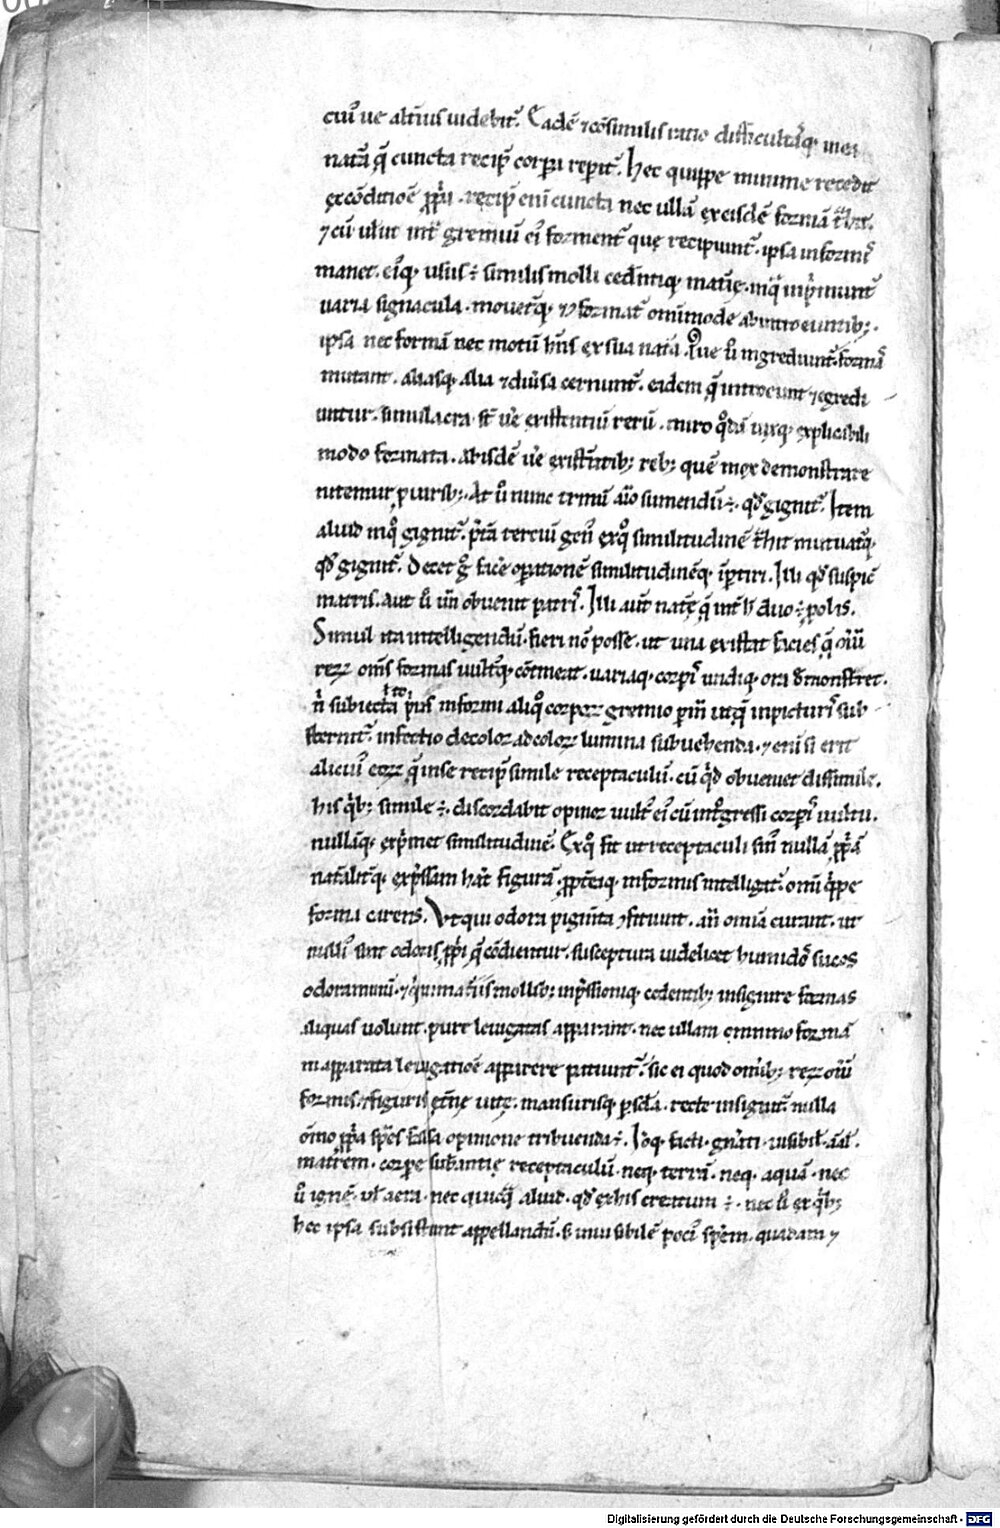 cui᷒ ue altius uidebit᷑. Eadē ⁊ cōsimilis ratio difficultasq;
natā q̄ cuncta recip̄ corpora repit᷑. Hec quippe minime recedit
ex cōditiōe ꝓp̄ria. recip̄ eni cuncta nec ullā ex eisdē formā t̄hit.
⁊ cū uelut int᷑ gremiū ei᷒ forment᷑ quę recipiunt᷑. ipsa informis
manet. ei᷒q; usus ÷ similis molli cedentiq; materię. inq̄ inp̄munt᷑
uaria signacula. mouet᷑q; ⁊ format᷑ omīmode ab introeuntib;.
ipsa nec formā nec motū hn̄s ex sua natā. Que ū ingrediunt᷑. formā
mutant. aliasq; alia ⁊ diūsa cernunt᷑. eidem q̄ introeunt ⁊ egredi
untur. simulacra. st̄ ūe existentiū rerū. miro q̊dā uixq; explicabili
modo formata. abisdē ūe existentib; reb; quē mox demonstrare
nitemur ꝑ uirib;. At ū nunc trinū animo sumendū ÷. qd̄ gignit᷑. Item
aliud inq̊ gignit᷑. p̄tā terciū gen᷒ exq̊ similitudinē t̄hit mutuat᷑q;
qd̄ gignit᷑. Decet g̊ facie oparationē similitudinēq; īptiri. Illi qd̄ suspic̄
matris. aut ū un̄ obuenit patris. Illi aut natę q̄ int᷑ h̄ duo ÷ polis.
Simul ita intelligendū. fieri nō posse. ut una existat facies q̄ oīū
reꝝ om̄s formas uultusq; cōtineat. uariaq; corpis undiq; ora demonstret.
n̄ subiecto p̄us informi aliq̊ corpoꝝ gremio pin̄ utq̄ inpicturis sub
sternit᷑ infectio decolor ad coloꝝ lumina subuehenda. ⁊ eni si erit
alicui᷒ eoꝝ q̄ inse recip̄ simile receptaculū. cū q̄d obueniet dissimile.
his q̄b; simile ÷. discordabit opinor uult᷒ ei᷒ cū int̊gressi corporis uultu.
nullāq; exp̄met similitudinē. Exq̊ fit ut receptaculi sin᷒ nullā ꝓp̄ā
natālit᷑q; exp̄ssam hat̄ figurā. ꝓptēaq; informis intelligat᷑. omī q̄ppe
forma carens. Vt qui odora pigmta ꝯficiunt. an̄ omīa curant. ut
nulli᷒ sint odoris ꝓp̄i q̄ cōdientur. susceptura uidelicet humidos sucos
odoraminū. ⁊ qui matīis mollib; inp̄ssioniq; cedentib; insignire formas
aliquas uolunt. pure leuigatas apparant. nec ullam omnino formā
in apparata leuigatiōe apparere patiunt᷑. sic ei quod omīb; reꝝ oīū
formis. ⁊ figuris et̄nę uitę. mansurisq; p secla. recte insignit᷑. nulla
ōino ꝓp̄a spēs falsa opinione tribuenda ÷. Ioq; facti. gn̄ati. uisibil. aīal.
matrem. corporee substantię receptaculū. neq; terrā. neq; aquā. nec
ū ignē. ul̄ aera. nec quicq̄ aliud. qd̄ ex his creatum ÷. nec ū ex q̄b;
hec ipsa subsistunt appellandū. s; inuisibilē poci᷒ spēm. quadam ⁊